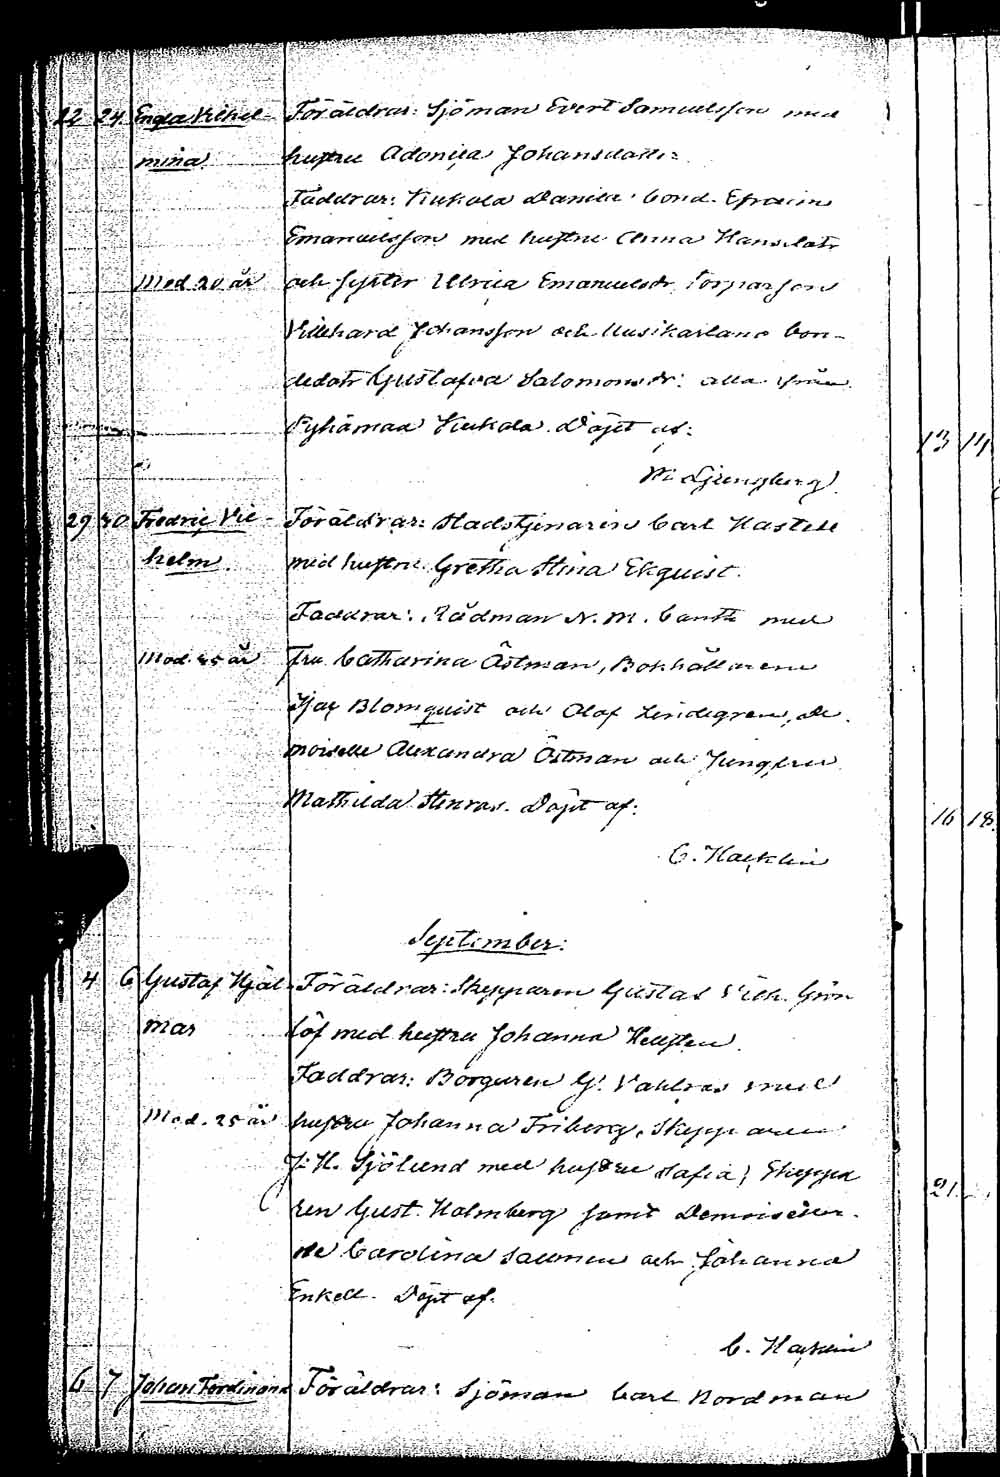 22 24 Engla Vilhel- Föräldrar: Sjöman Evert Samuelsson med
mina hustru Adonica Johansdotter
Faddrar: Kukola Daniela bond. Efraim
Emanuelsson med hustru Anna Hansdotr
Mod. 20 år och syster Ulrica Emanuelsdr, Torparson
Vilehard Johansson och Uusikartano bon-
dedotr Gustafva Salomonsdr: alla ifrån
Pyhämaa Kukola. Döpt af:
W. Ljungberg.
29 30 Fredric Vil- Föräldrar: Stadstjenaren Carl Hastell
helm med hustru Gretha Stina Ekquist.
Faddrar: Rådman N. M. Canth med
Mod. 45 år fru Catharina Östman, Bokhållarene
Isac Blomquist och Olof Lindegren, De-
moiselle Alexandra Östman och Jungfru
Mathilda Stenros. Döpt af:
C. Hacklin
September:
4 6 Gustaf Hjal- Föräldrar: Skepparen Gustaf Vilh. Grön
mar löf med hustru Johanna Hellsten.
Faddrar: Borgaren G. Vahlros med
Mod. 25 år hustru Johanna Friberg, Skepparen
J. H. Sjölund med hustru Safia, Skeppa
ren Gust. Holmberg samt Demoiseller-
ne Carolina Salmen och Johanna
Enkell. Döpt af:
C. Hacklin
6 7 Johan Ferdinand Föräldrar: Sjöman Carl Nordman
13 14
16 18
21